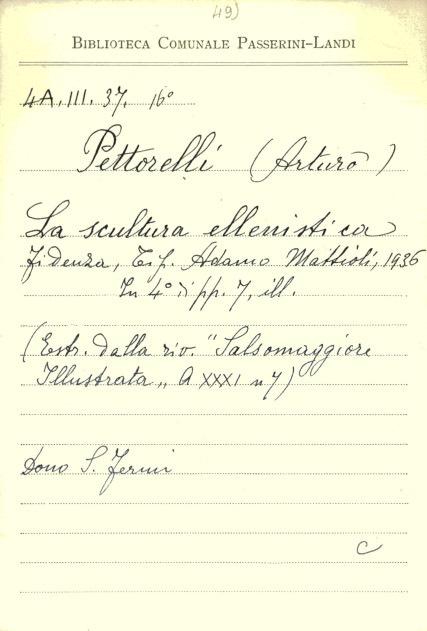 49)
BIBLIOTECA COMUNALE PASSERINI-LANDI
4A.III.37. 16°
Pettorelli (Arturo)
La scultura ellenistica
Fidenza, Tip. Adamo Mattioli, 1936
In 4° di pp. 7, ill.
(Estr. dalla riv. "Salsomaggiore
Illustrata„ A XXXI n 7)
Dono S. Fermi
C